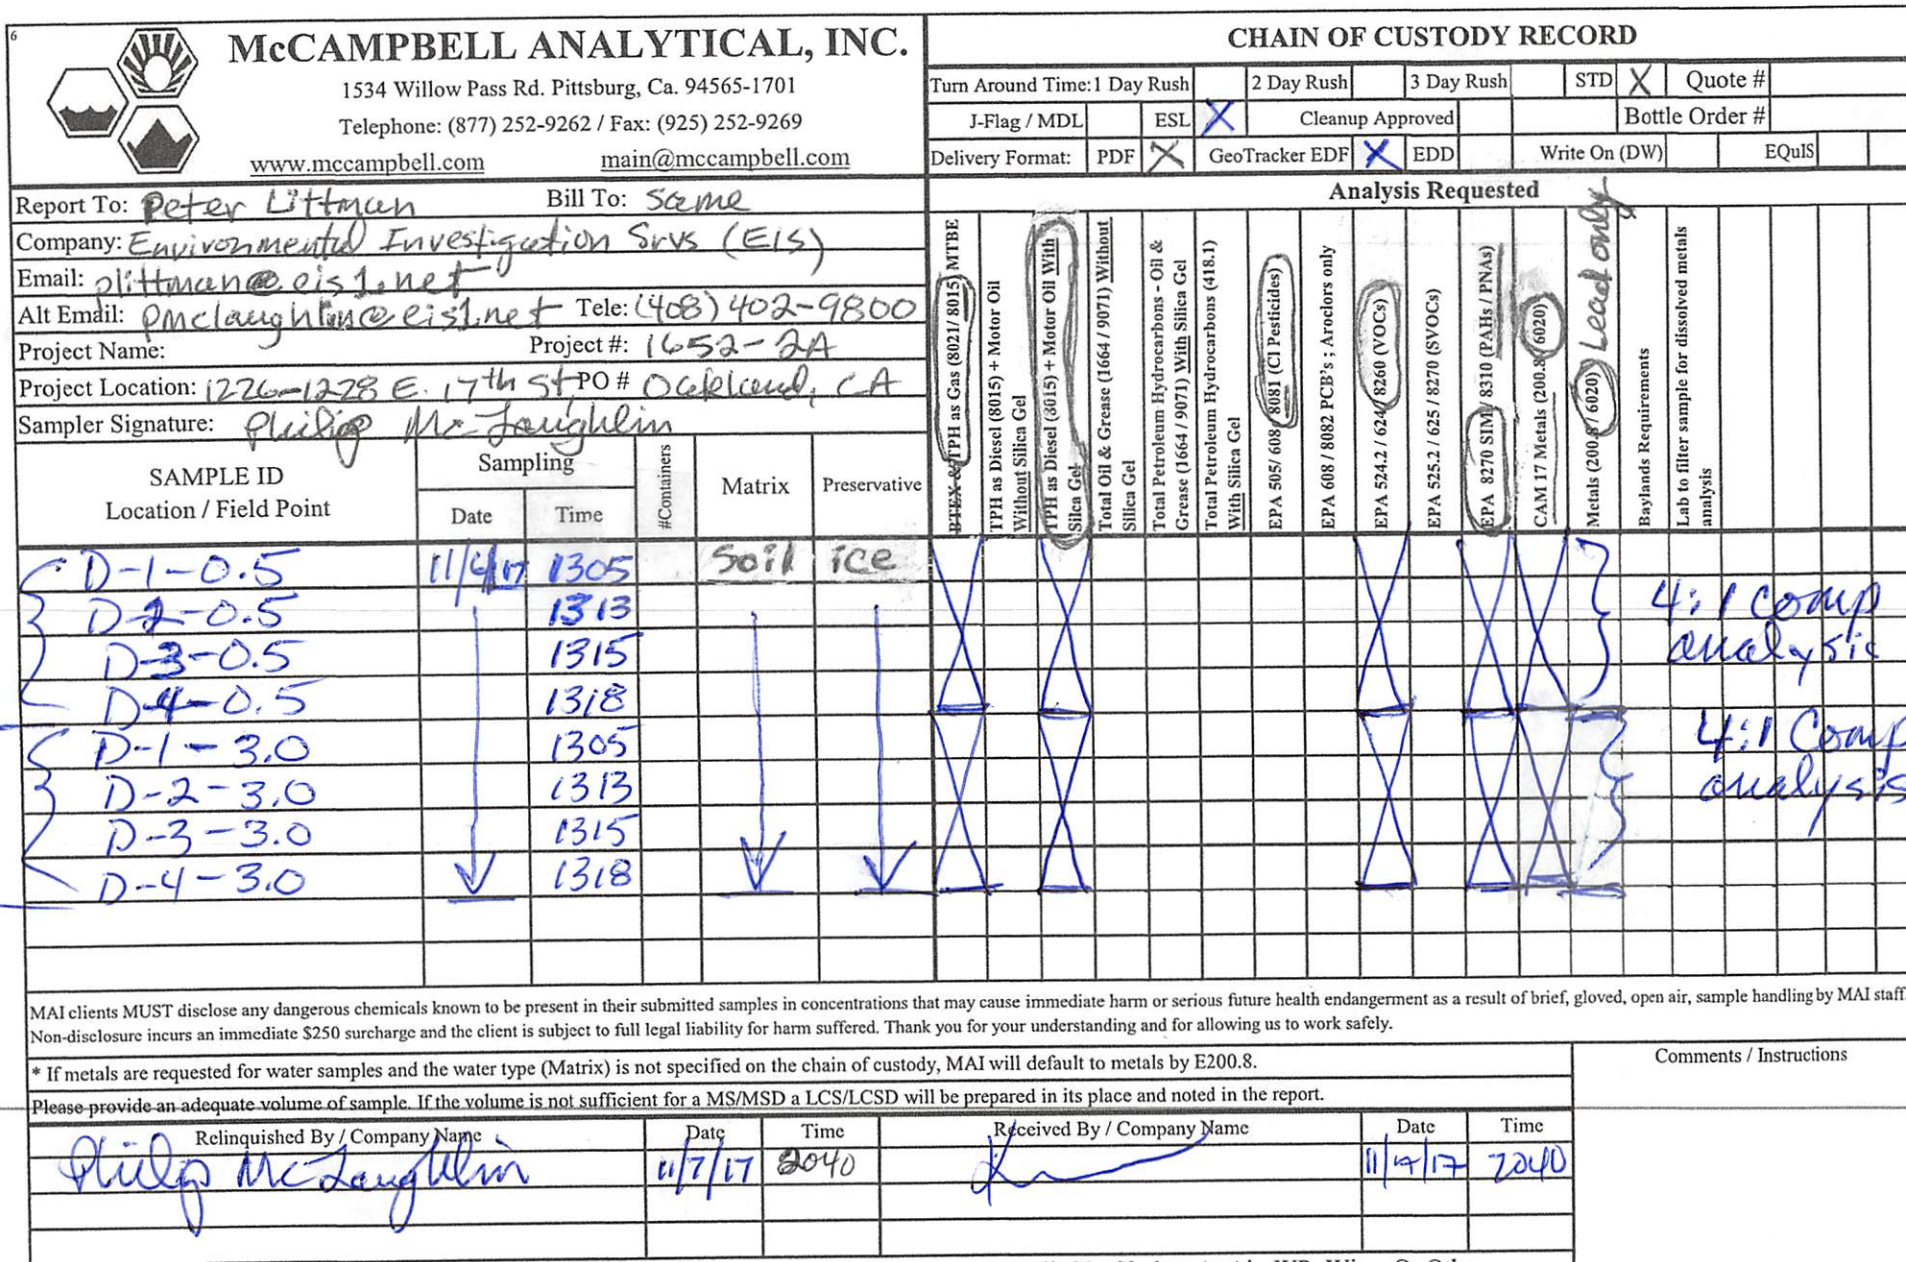 6
McCAMPBELL ANALYTICAL, INC.
1534 Willow Pass Rd. Pittsburg, Ca. 94565-1701
Telephone: (877) 252-9262 / Fax: (925) 252-9269
www.mccampbell.com main@mccampbell.com
CHAIN OF CUSTODY RECORD
Turn Around Time: 1 Day Rush 2 Day Rush 3 Day Rush STD X Quote #
J-Flag / MDL ESL X Cleanup Approved Bottle Order #
Delivery Format: PDF X GeoTracker EDF X EDD Write On (DW) EQuIS
Report To: Peter Littman Bill To: Same
Company: Environmental Investigation Srvs (EIS)
Email: plittman@eis1.net
Alt Email: pmclaughlin@eis1.net Tele: (408) 402-9800
Project Name: Project #: 1652-2A
Project Location: 1226-1228 E. 17th St, PO # Oakland, CA
Sampler Signature: Philip McLaughlin
Analysis Requested
BTEX & TPH as Gas (8021/ 8015) MTBE
TPH as Diesel (8015) + Motor Oil
Without Silica Gel
TPH as Diesel (8015) + Motor Oil With
Silca Gel
Total Oil & Grease (1664 / 9071) Without
Silica Gel
Total Petroleum Hydrocarbons - Oil &
Grease (1664 / 9071) With Silica Gel
Total Petroleum Hydrocarbons (418.1)
With Silica Gel
EPA 505/ 608/ 8081 (Cl Pesticides)
EPA 608 / 8082 PCB's ; Aroclors only
EPA 524.2 / 624 / 8260 (VOCs)
EPA 525.2 / 625 / 8270 (SVOCs)
EPA 8270 SIM / 8310 (PAHs / PNAs)
CAM 17 Metals (200.8 / 6020)
Metals (200.8 / 6020) Lead only
Baylands Requirements
Lab to filter sample for dissolved metals
analysis
SAMPLE ID
Location / Field Point
Sampling
Date Time
#Containers
Matrix
Preservative
D-1-0.5 11/6/17 1305 Soil ice
D-2-0.5 1313
D-3-0.5 1315
D-4-0.5 1318
4:1 comp
analysis
D-1-3.0 1305
D-2-3.0 1313
D-3-3.0 1315
D-4-3.0 1318
4:1 Comp
analysis
MAI clients MUST disclose any dangerous chemicals known to be present in their submitted samples in concentrations that may cause immediate harm or serious future health endangerment as a result of brief, gloved, open air, sample handling by MAI staff.
Non-disclosure incurs an immediate $250 surcharge and the client is subject to full legal liability for harm suffered. Thank you for your understanding and for allowing us to work safely.
* If metals are requested for water samples and the water type (Matrix) is not specified on the chain of custody, MAI will default to metals by E200.8.
Comments / Instructions
Please provide an adequate volume of sample. If the volume is not sufficient for a MS/MSD a LCS/LCSD will be prepared in its place and noted in the report.
Relinquished By / Company Name Date Time Received By / Company Name Date Time
Philip McLaughlin 11/7/17 2040 2040